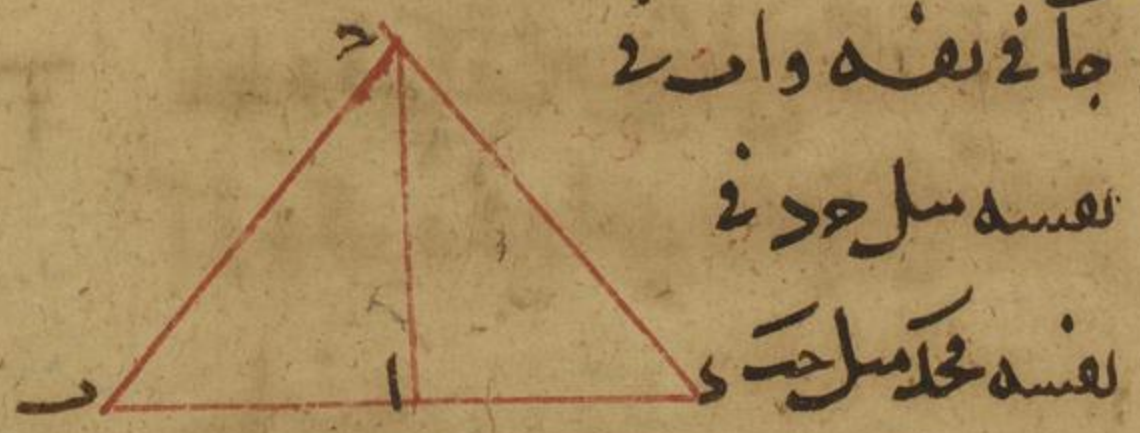 جا في نفسه واب في
نفسه مثل جد في
نفسه فجد مثل جب
ج
د
ا
ب